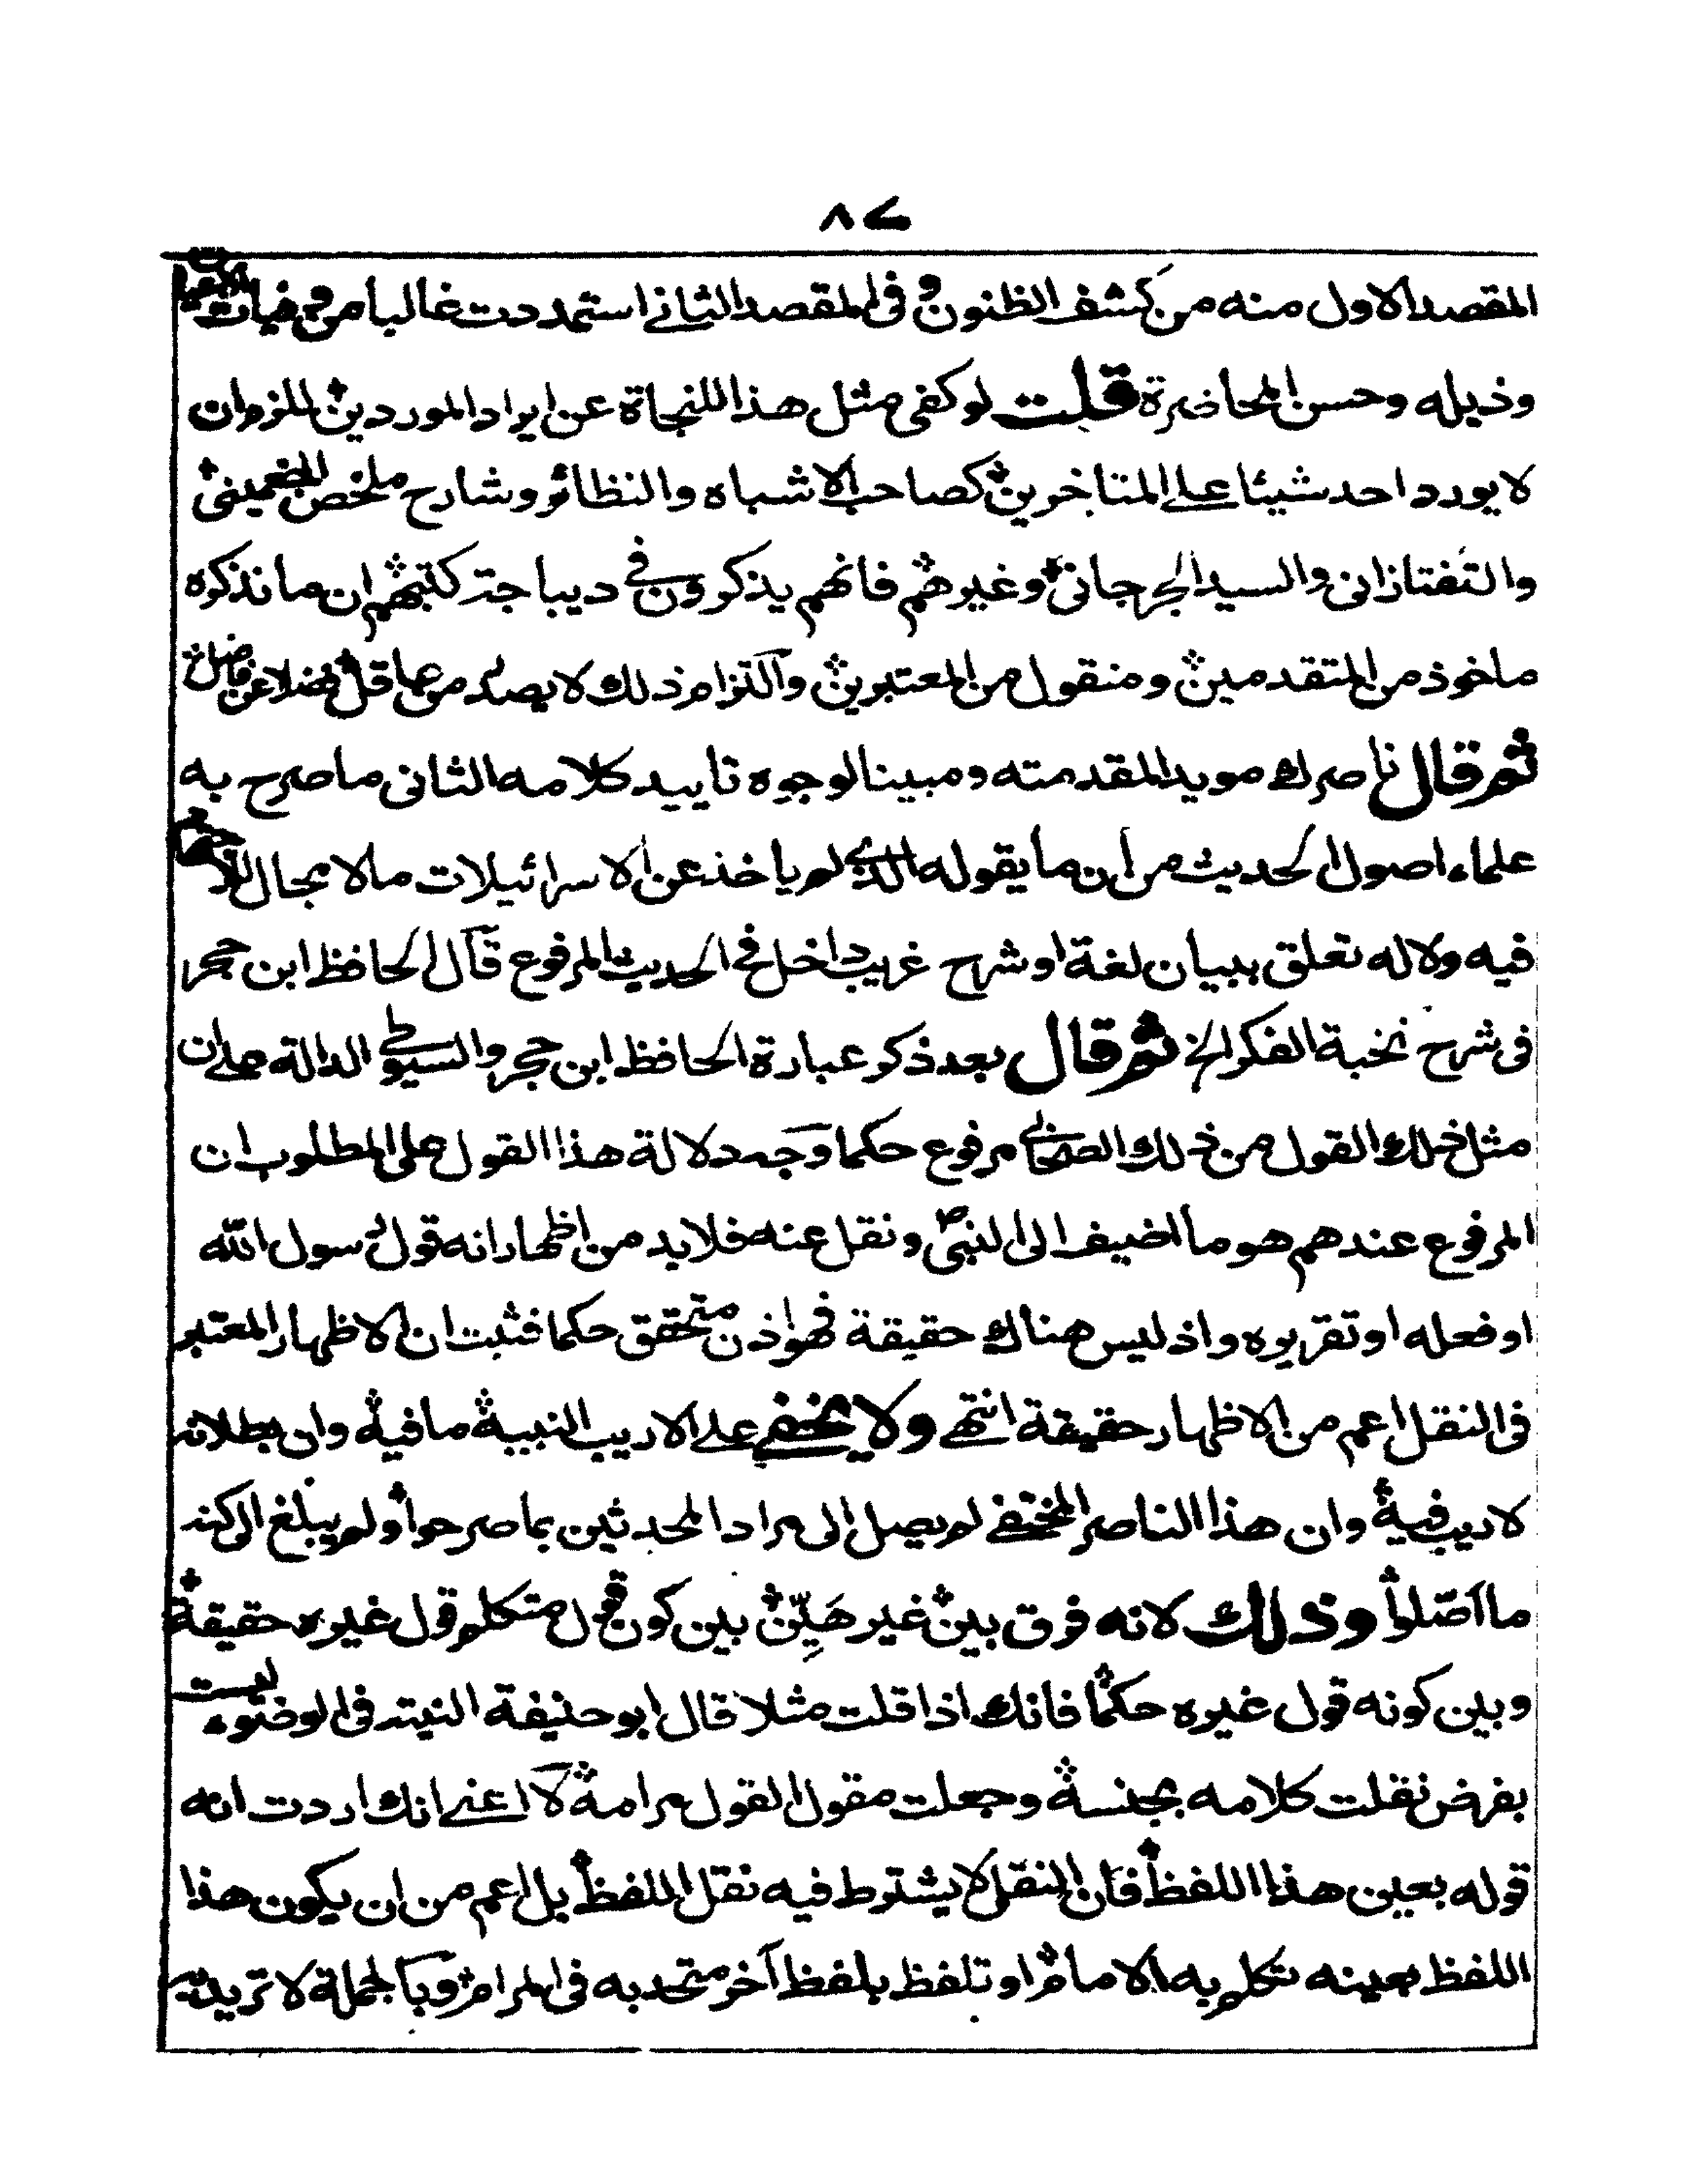 ٨٧
المقصد الاول منه من كشف الظنون وفى المقصد الثانى استمددت غالبا من وفيات الاعيان
وذيله وحسن المحاضرة قلت لو كفى مثل هذا للنجاة عن ايراد الموردين للزم ان
لا يورد احد شيئا على المتاخرين كصاحب الاشباه والنظائر وشارح ملخص الچغمينى
والتفتازانى والسيد الجرجانى وغيرهم فانهم يذكرون فى ديباجة كتبهم ان ما نذكره
ماخوذ من المتقدمين ومنقول من المعتبرين والتزام ذلك لا يصدر من عاقل فضلا عن فاضل
ثم قال ناصرك مويدا لمقدمته ومبينا لوجوه تاييد كلامه الثانى ما صرح به
علماء اصول الحديث من ان ما يقوله الذى لم ياخذ عن الاسرائيلات مالا مجال للاجتهاد
فيه ولا له تعلق ببيان لغة او شرح غريب داخل فى الحديث المرفوع قال الحافظ ابن حجر
فى شرح نخبة الفكر الخ ثم قال بعد ذكر عبارة الحافظ ابن حجر والسيوطى الدالة على ان
مثل ذلك القول من ذلك الصحابى مرفوع حكما وجه دلالة هذا القول على المطلوب ان
المرفوع عندهم هو ما اضيف الى النبىؐ ونقل عنه فلابد من اظهار انه قول رسول الله
او فعله او تقريره واذ ليس هناك حقيقة فهو اذن متحقق حكما فثبت ان الاظهار المعتبر
فى النقل اعم من الاظهار حقيقة انتهى ولا يخفى على الاديب النبيه ما فيه وان بطلانه
لا ريب فيه وان هذا الناصر المختفى لم يصل الى مراد المحدثين بما صرحوا ولم يبلغ الى كنه
ما اصلوا وذلك لانه فرق بين غير هَيِّن بين كون قول متكلم قول غيره حقيقة
وبين كونه قول غيره حكما فانك اذا قلت مثلا قال ابو حنيفة النية فى الوضوء ليست
بفرض نقلت كلامه بجنسه وجعلت مقول القول مرامه لا اعنى انك اردت انه
قوله بعين هذا اللفظ فان النقل لا يشترط فيه نقل اللفظ بل اعم من ان يكون هذا
اللفظ بعينه تكلم به الامام او تلفظ بلفظ آخر متحد به فى المرام وبالجملة لا تريد به